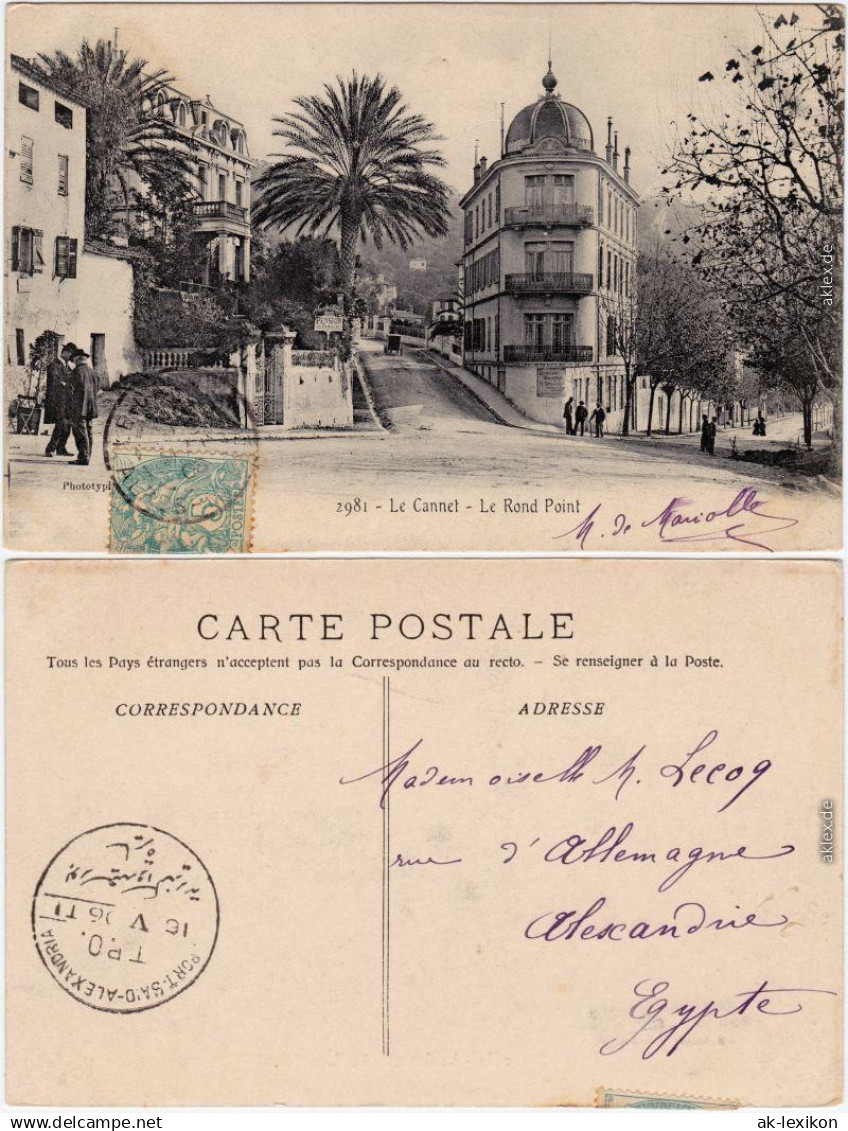 PENSION
Phototypi
2981 - Le Cannet - Le Rond Point
M. de Mariolle
CARTE POSTALE
Tous les Pays étrangers n'acceptent pas la Correspondance au recto. - Se renseigner à la Poste.
CORRESPONDANCE
ADRESSE
Mademoiselle M. Lecoq
rue d'Allemagne
Alexandrie
Egypte
PORT-SAID-ALEXANDRIA
T.P.O.
16 V 06 T1
aklex.de
aklex.de
ak-lexikon